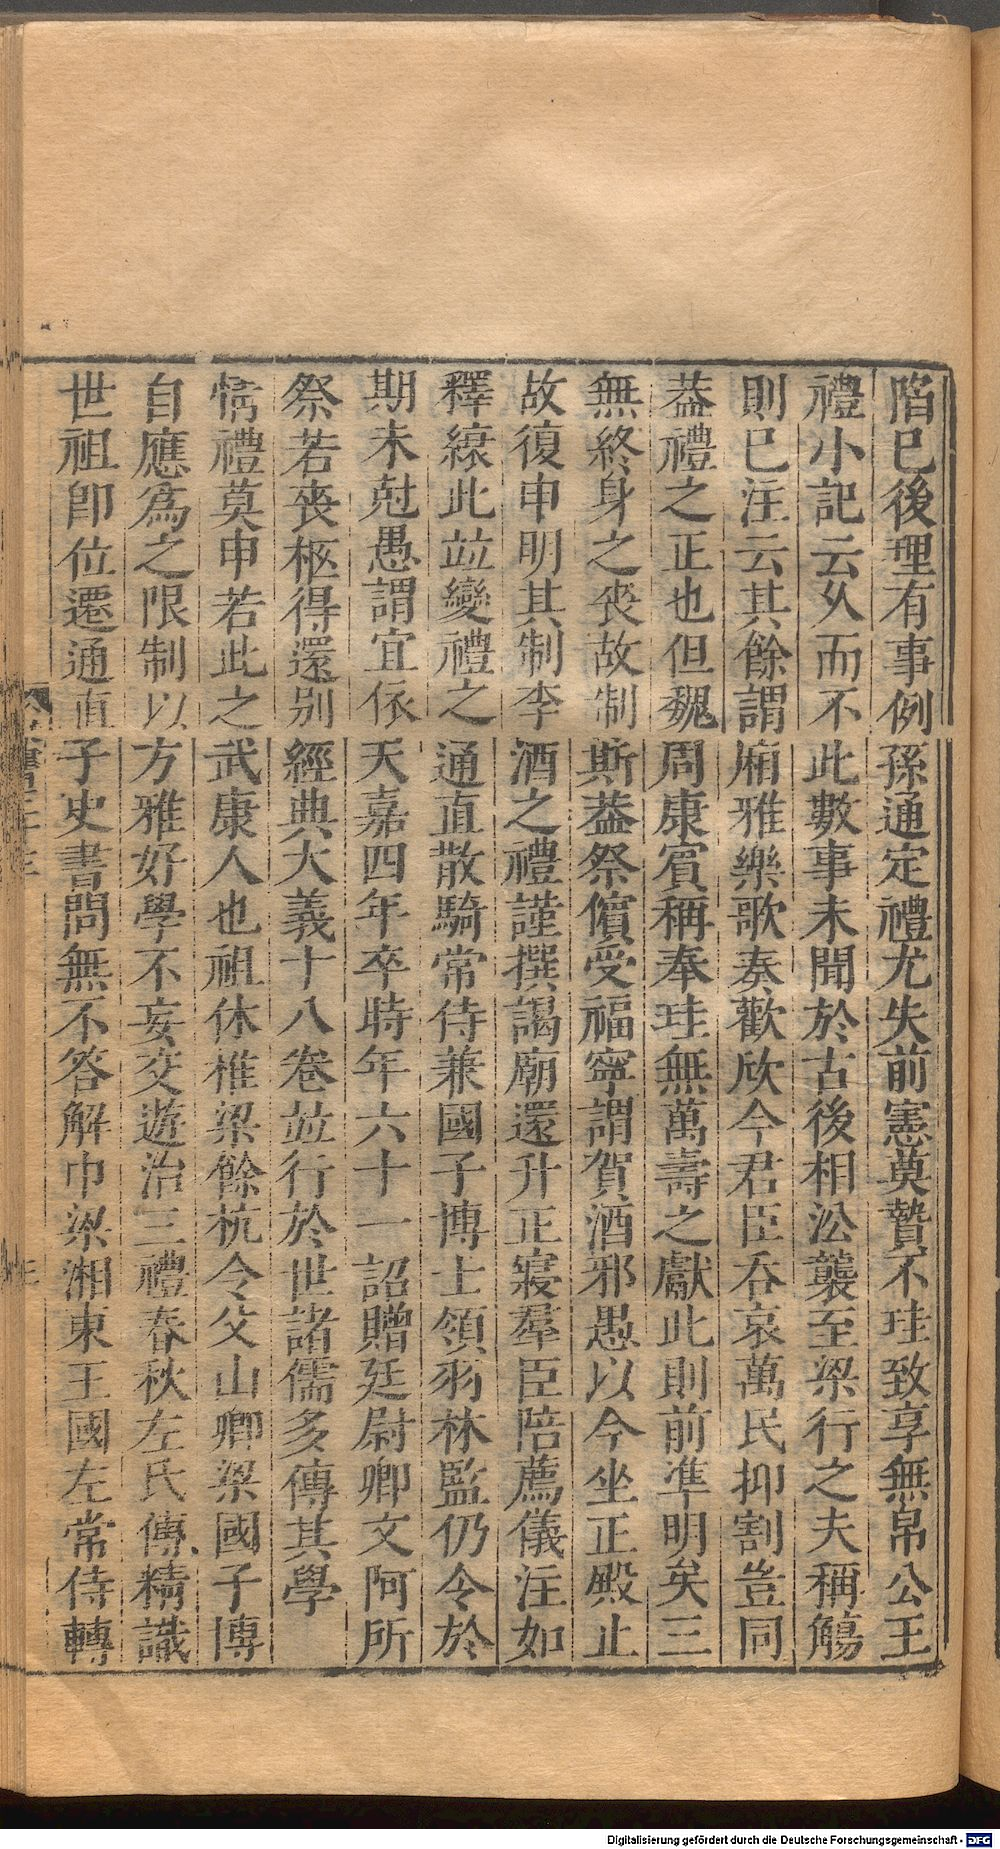 陷已後理有事例孫通定禮尤失前憲奠贄不珪致享無帛公王
禮小記云久而不此數事未聞於古後相沿襲至梁行之夫稱觴
則已注云其餘謂廂雅樂歌奏歡欣今君臣吞哀萬民抑割豈同
葢禮之正也但魏周康賓稱奉珪無萬壽之獻此則前準明矣三
無終身之喪故制斯葢祭儐受福寧謂賀酒邪愚以今坐正殿止
故復申明其制李酒之禮謹撰謁廟還升正寢羣臣陪薦儀注如
釋縗此竝變禮之通直散騎常侍兼國子博士領羽林監仍令於
期未尅愚謂宜依天嘉四年卒時年六十一 詔贈廷尉卿文阿所
祭若喪柩得還别經典大義十八卷竝行於世諸儒多傳其學
情禮莫申若此之武康人也祖休稚梁餘杭令父山卿梁國子博
自應爲之限制以方雅好學不妄交遊治三禮春秋左氏傳精識
世祖即位遷通直子史書問無不答解巾梁湘東王國左常侍轉
Digitalisierung gefördert durch die Deutsche Forschungsgemeinschaft - DFG